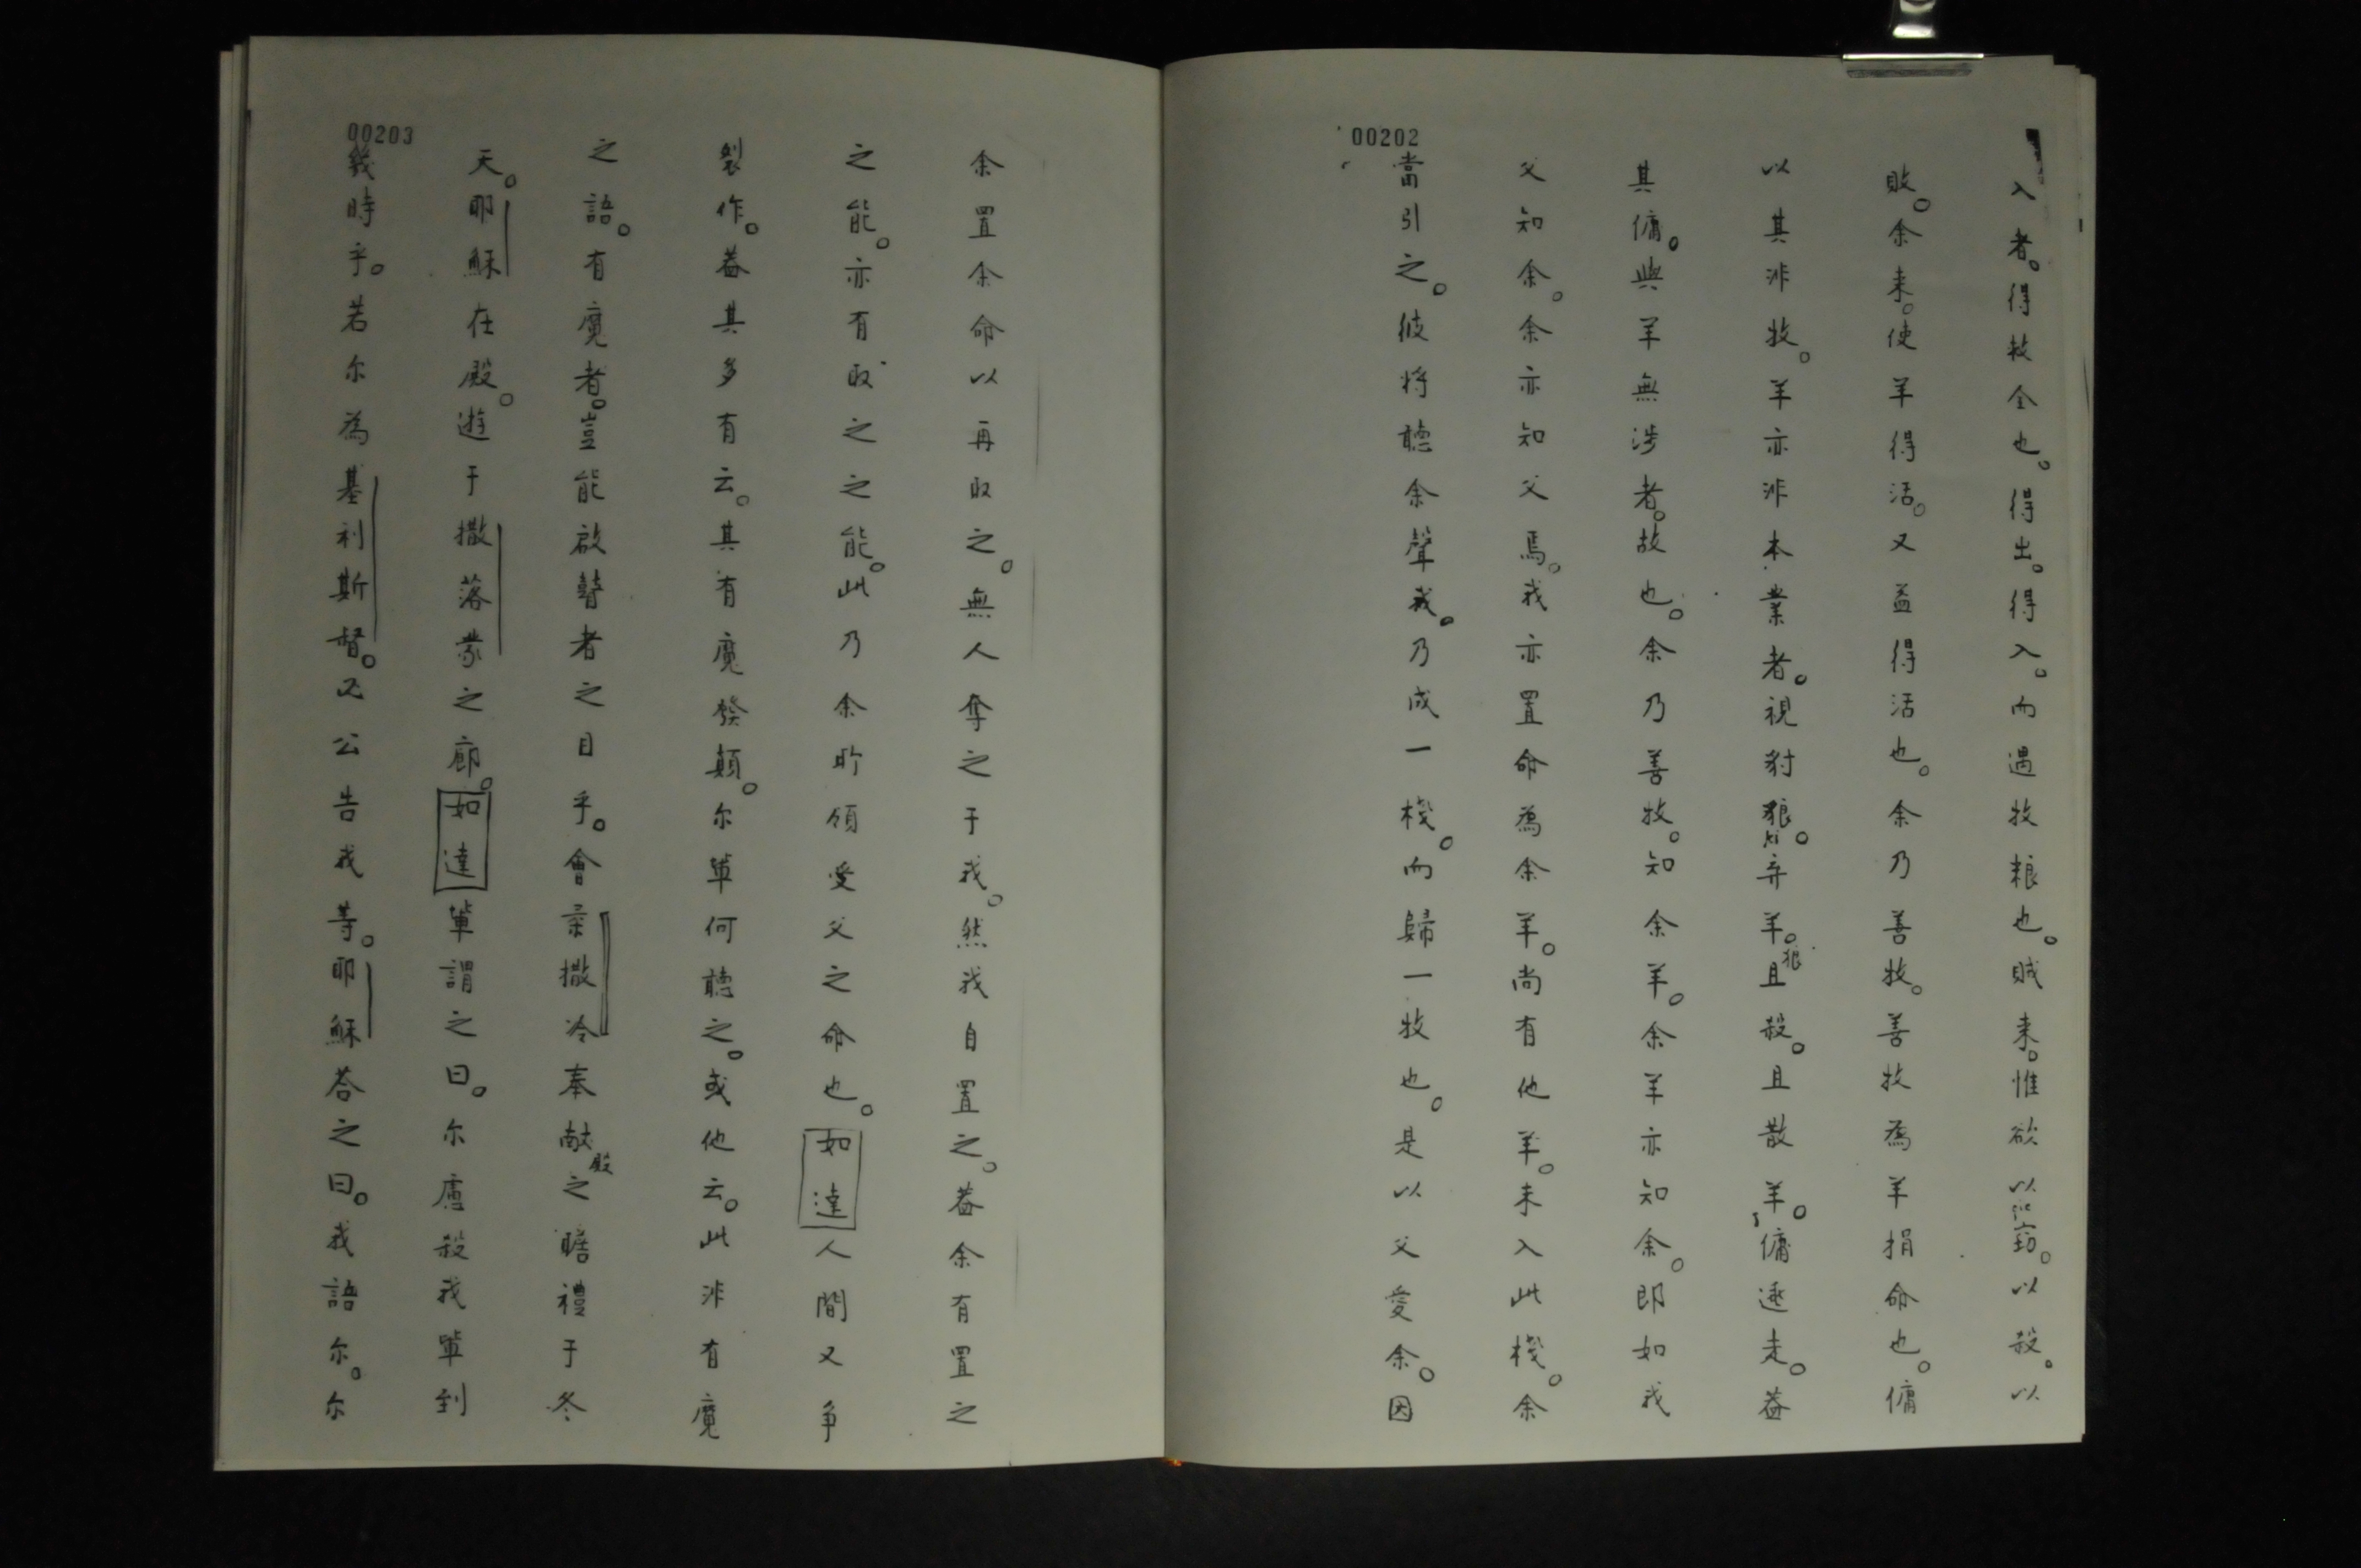 00202
入者。得救全也。得出。得入。而遇牧粮也。賊来。惟欲以窃。以殺。以
敗。余来。使羊得活。又益得活也。余乃善牧。善牧為羊捐命也。傭
以其非牧。羊亦非本業者。視豺狼。弃羊。狼且殺。且散羊。傭逃走。蓋
其傭。與羊無涉者。故也。余乃善牧。知余羊。余羊亦知余。即如我
父知余。余亦知父焉。我亦置命為余羊。尚有他羊。未入此棧。余
當引之。彼将聽余聲我。乃成一棧。而歸一牧也。是以父愛余。因
00203
余置余命以再取之。無人奪之于我。然我自置之。蓋余有置之
之能。亦有取之之能。此乃余所領受父之命也。如達人間又爭
製作。蓋其多有云。其有魔發顛。尔軰何聽之。或他云。此非有魔
之語。有魔者。豈能啟瞽者之目乎。會柔撒冷奉献殿之瞻禮于冬
天。耶穌在殿。遊于撒落蒙之廊。如達軰謂之曰。尔慮殺我軰到
幾時乎。若尔為基利斯督。公告我等。耶穌荅之曰。我語尔。尔